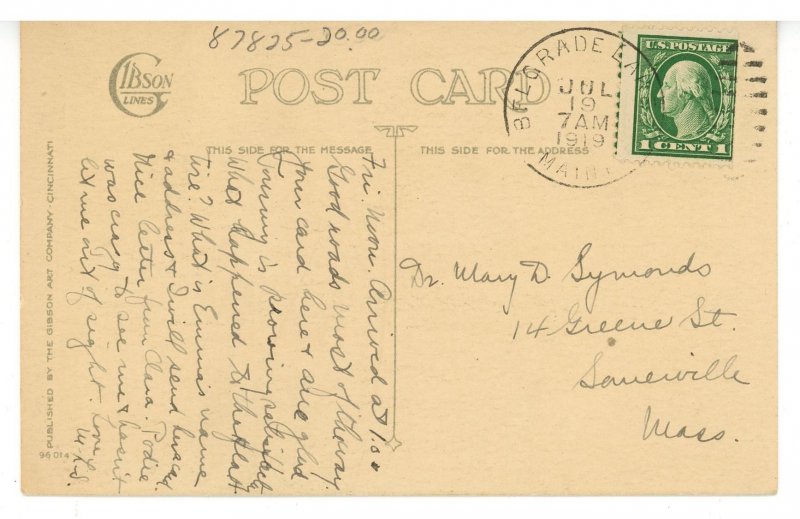 87825-20.00
GIBSON
LINES
POST CARD
BELGRADE LA
JUL
19
7AM
1919
MAINE
U.S. POSTAGE
1 CENT 1
THIS SIDE FOR THE MESSAGE
THIS SIDE FOR THE ADDRESS
Fri. Noon. Arrived at 1.00
Good roads most of the way.
Your card here & are glad
Journey is proving satisfact
What happened to the flat
tire? What is Emma's name
& address & I will send her a cd
Nice letter from Clara.
was crazy to see me & hasn't
let me out of sight. Love
M.L.S.
Dr. Mary D. Symonds
14 Greene St.
Somerville
Mass.
PUBLISHED BY THE GIBSON ART COMPANY - CINCINNATI
96014